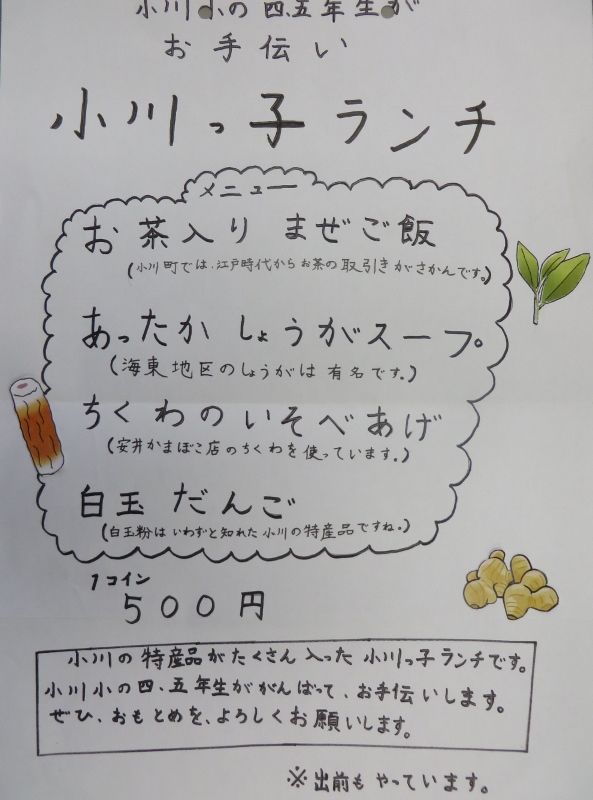 小川小の四、五年生が
お手伝い
小川っ子ランチ
メニュー
お茶入りまぜご飯
(小川町では、江戸時代からお茶の取引きがさかんです。)
あったかしょうがスープ
(海東地区のしょうがは有名です。)
ちくわのいそべあげ
(安井かまぼこ店のちくわを使っています。)
白玉だんご
(白玉粉はいわずと知れた小川の特産品ですね。)
1コイン
500円
小川の特産品がたくさん入った小川っ子ランチです。
小川小の四、五年生ががんばって、お手伝いします。
ぜひ、おもとめを、よろしくお願いします。
※出前もやっています。